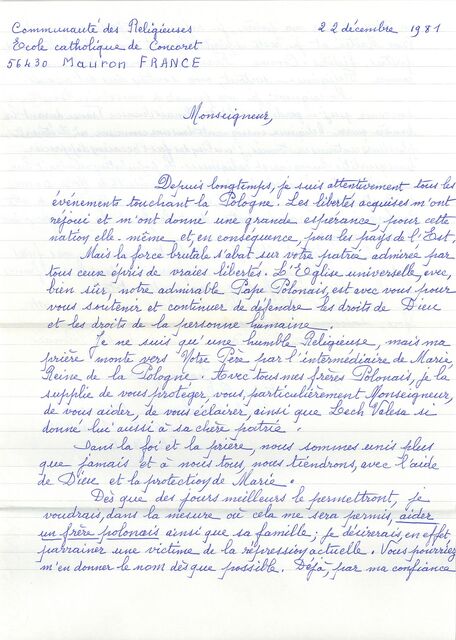 Communauté des Religieuses
22 décembre 1981
Ecole catholique de Concoret
56430 Mauron FRANCE
Monseigneur,
Depuis longtemps, je suis attentivement tous les
événements touchant la Pologne. Les libertés acquises m'ont
réjoui et m'ont donné une grande espérance, pour cette
nation elle-même et, en conséquence, pour les pays de l'Est.
Mais la force brutale s'abat sur votre patrie admirée par
tous ceux épris de vraies libertés. L'Eglise universelle, avec,
bien sûr, notre admirable Pape Polonais, est avec vous pour
vous soutenir et continuer de défendre les droits de Dieu
et les droits de la personne humaine.
Je ne suis qu'une humble Religieuse, mais ma
prière monte vers Notre Père par l'intermédiaire de Marie,
Reine de la Pologne. Avec tous mes frères Polonais, je la
supplie de vous protéger, vous particulièrement Monseigneur,
de vous aider, de vous éclairer, ainsi que Lech Valesa si
donné lui aussi à sa chère patrie.
Dans la foi et la prière, nous sommes unis plus
que jamais et à nous tous, nous tiendrons, avec l'aide
de Dieu et la protection de Marie.
Dès que des jours meilleurs le permettront, je
voudrais, dans la mesure où cela me sera permis, aider
un frère polonais ainsi que sa famille; je désirerais, en effet,
parrainer une victime de la répression actuelle. Vous pourriez
m'en donner le nom dès que possible. Déjà, par ma confiance